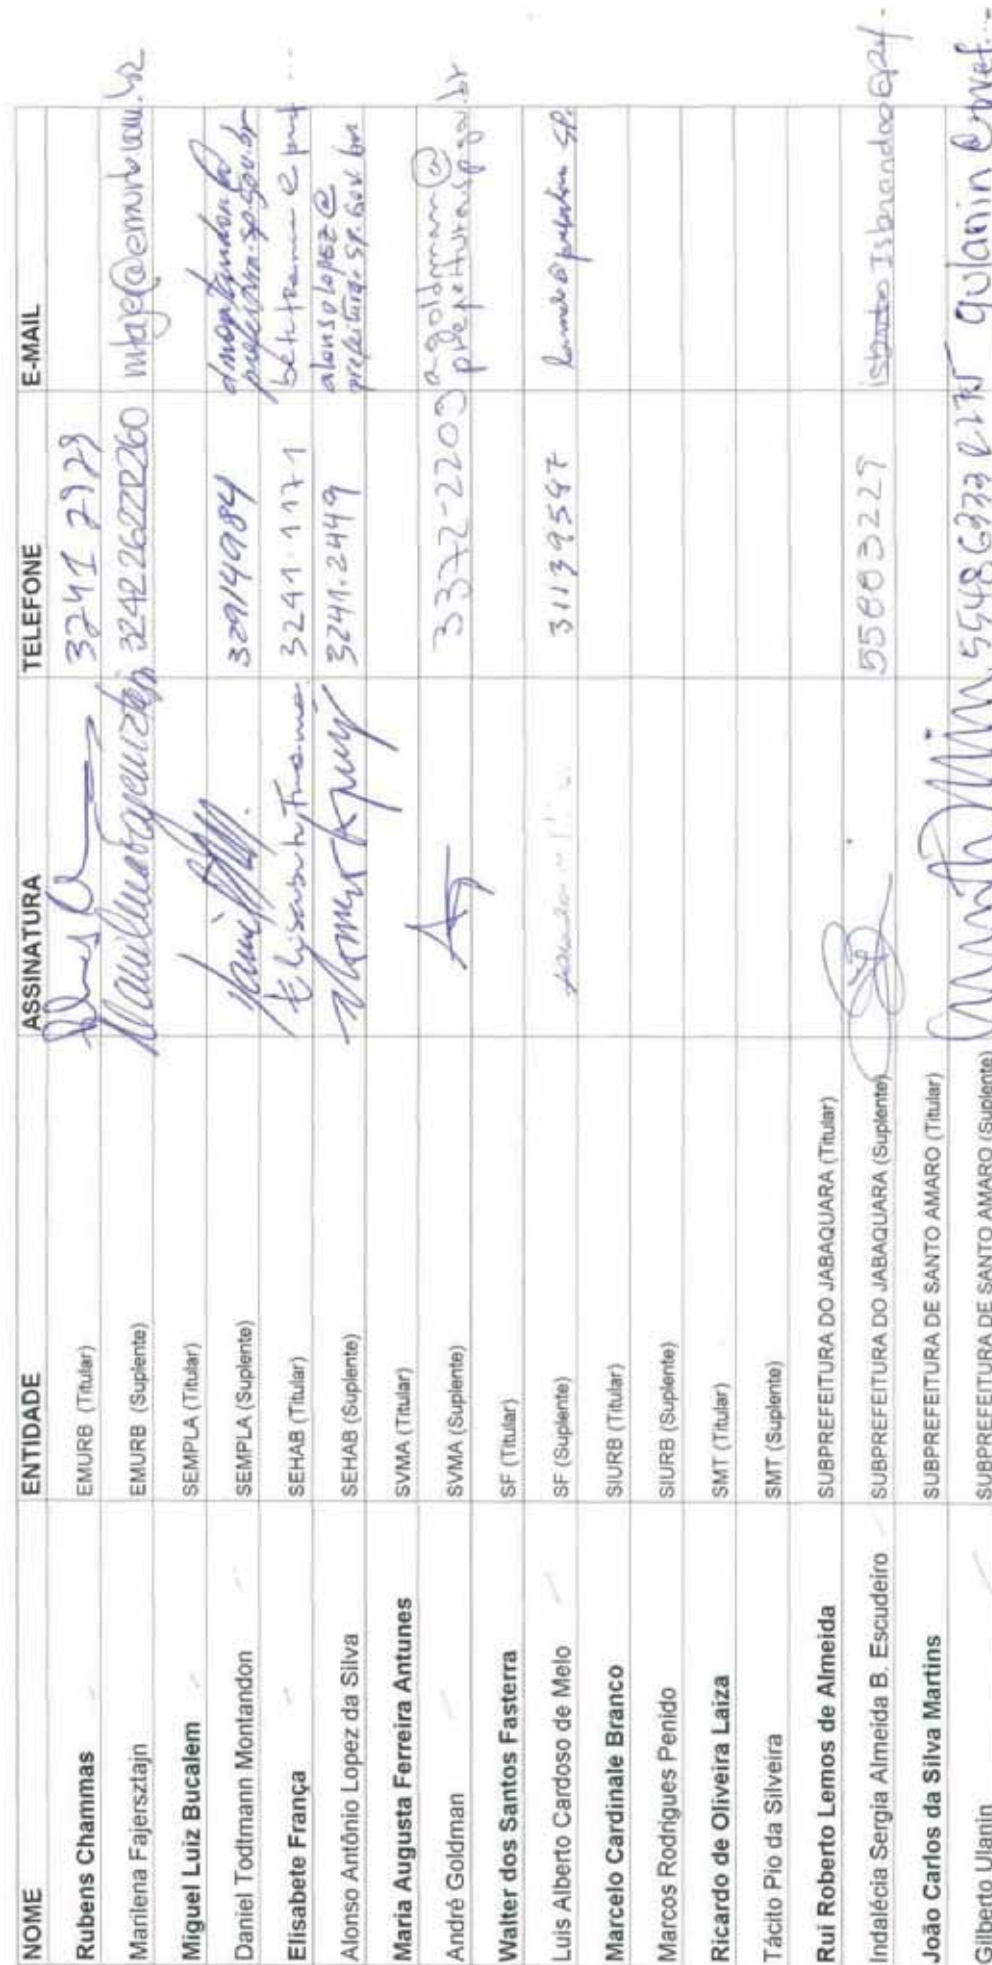 NOME ENTIDADE ASSINATURA TELEFONE E-MAIL
Rubens Chammas EMURB (Titular) 3241 2929
Marilena Fajersztajn EMURB (Suplente)
Miguel Luiz Bucalem SEMPLA (Titular)
Daniel Todtmann Montandon SEMPLA (Suplente) 32914984 dmontandon@
prefeitura.sp.gov.br
Elisabete França SEHAB (Titular) 3241-1171
Alonso Antônio Lopez da Silva SEHAB (Suplente) 3241.2449 alonsolopez@
prefeitura.sp.gov.br
Maria Augusta Ferreira Antunes SVMA (Titular)
André Goldman SVMA (Suplente) 3372-2209 agoldman@
prefeitura.sp.gov.br
Walter dos Santos Fasterra SF (Titular)
Luis Alberto Cardoso de Melo SF (Suplente) 31139587
Marcelo Cardinale Branco SIURB (Titular)
Marcos Rodrigues Penido SIURB (Suplente)
Ricardo de Oliveira Laiza SMT (Titular)
Tácito Pio da Silveira SMT (Suplente)
Rui Roberto Lemos de Almeida SUBPREFEITURA DO JABAQUARA (Titular)
Indalécia Sergia Almeida B. Escudeiro SUBPREFEITURA DO JABAQUARA (Suplente)
João Carlos da Silva Martins SUBPREFEITURA DE SANTO AMARO (Titular)
Gilberto Ulanin SUBPREFEITURA DE SANTO AMARO (Suplente)